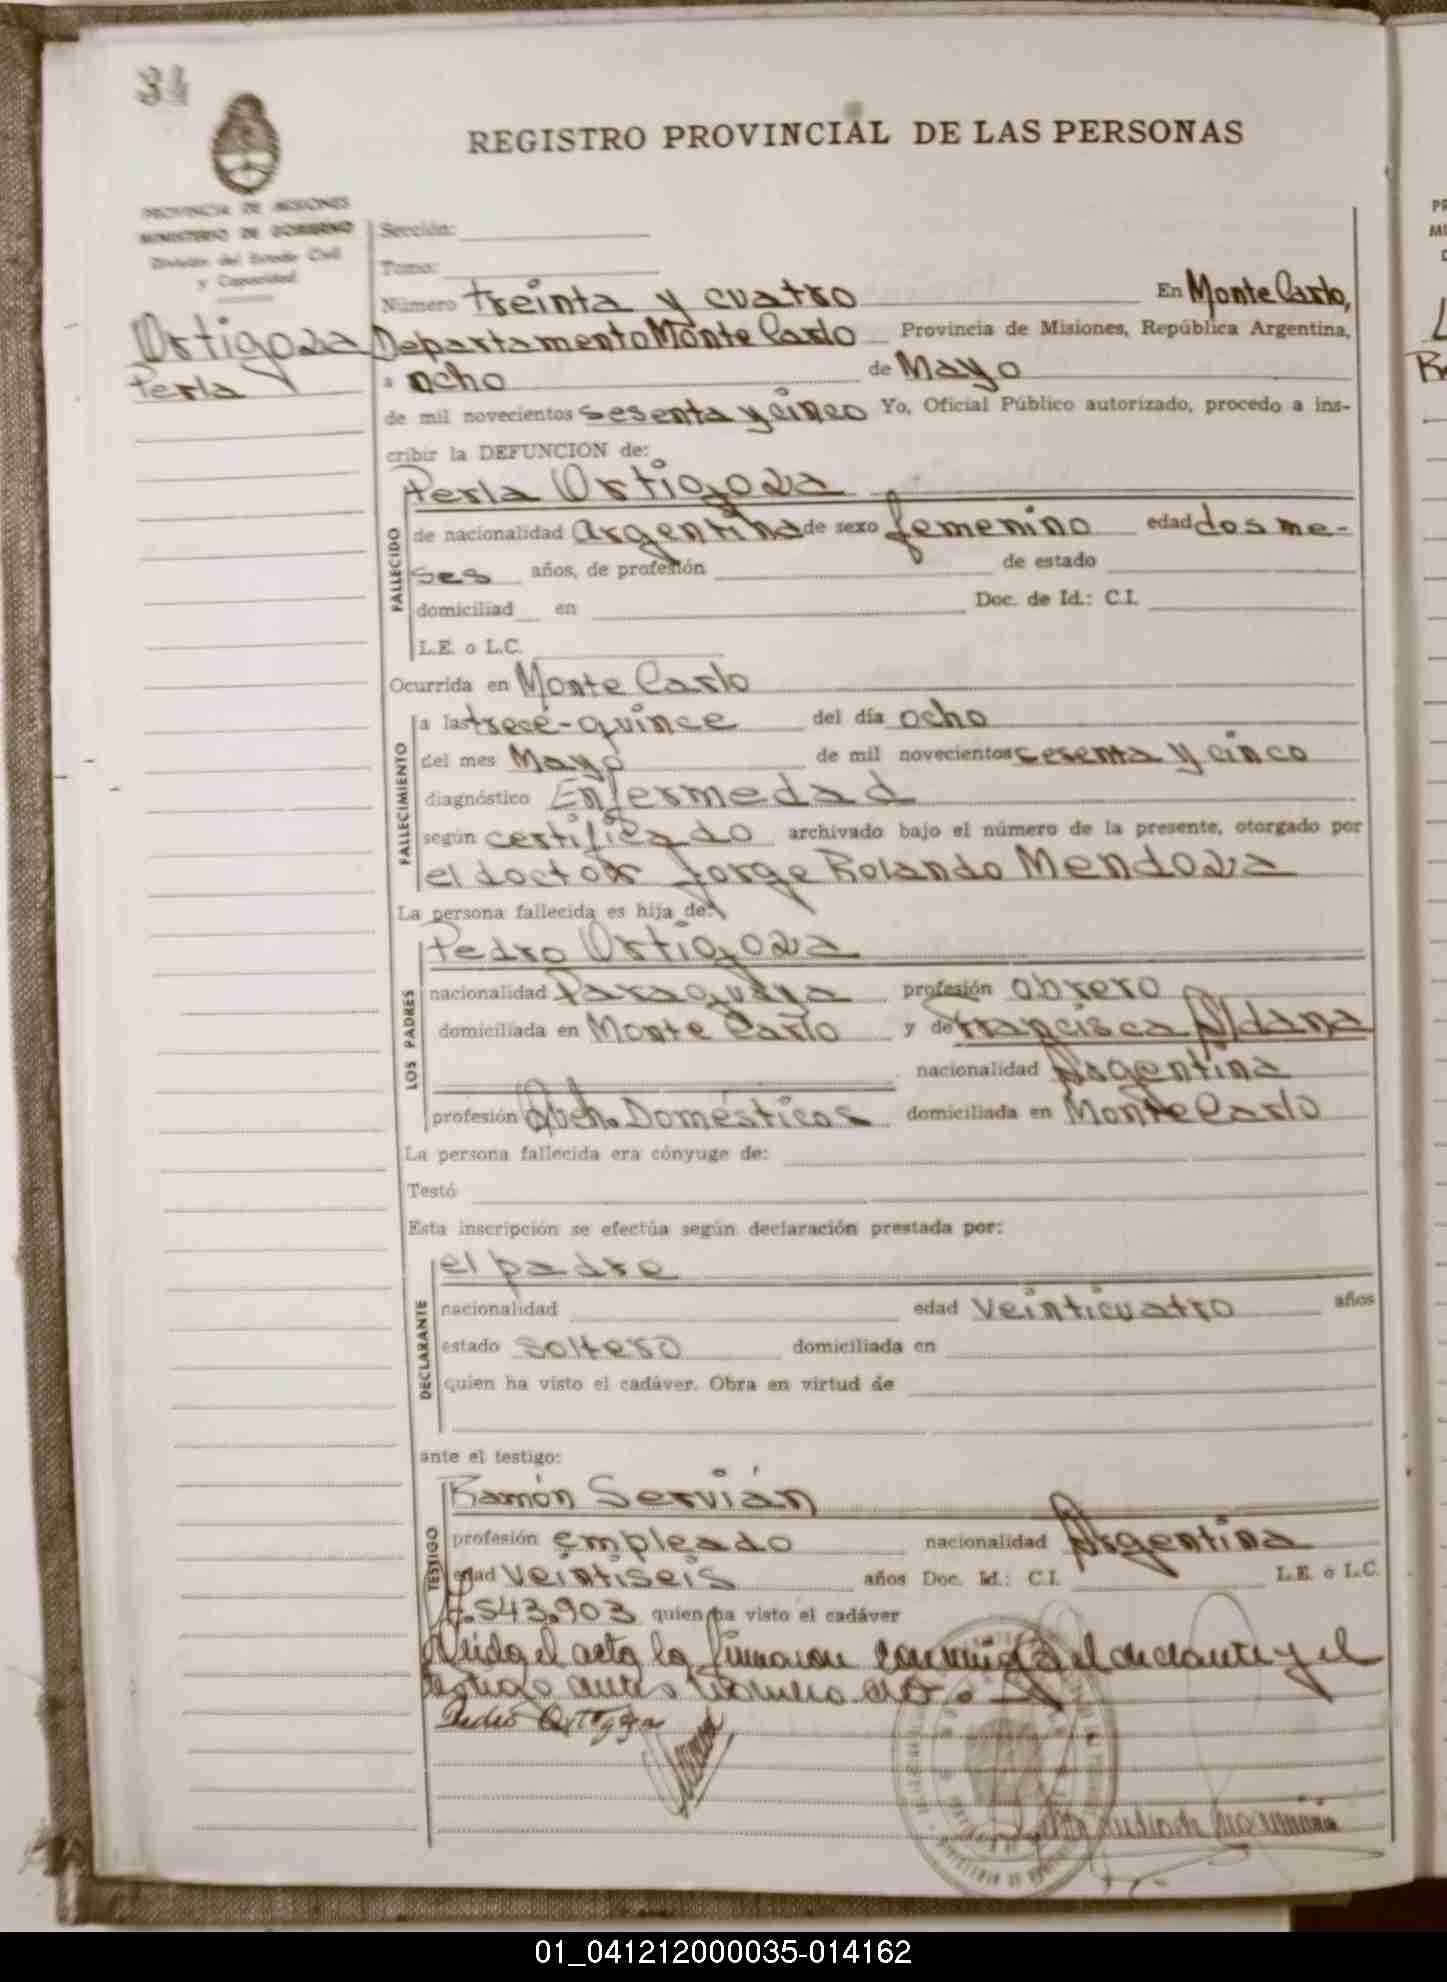 34
REGISTRO PROVINCIAL DE LAS PERSONAS
PROVINCIA DE MISIONES
MINISTERIO DE GOBIERNO
División del Estado Civil
y Capacidad
Ortigoza
Perla
Sección:
Tomo:
Número treinta y cuatro En Monte Carlo,
Departamento Monte Carlo Provincia de Misiones, República Argentina,
a ocho de Mayo
de mil novecientos sesenta y cinco Yo, Oficial Público autorizado, procedo a ins-
cribir la DEFUNCION de:
FALLECIDO
Perla Ortigoza
de nacionalidad argentina de sexo femenino edad dos me-
ses años, de profesión de estado
domiciliad en Doc. de Id.: C.I.
L.E. o L.C.
Ocurrida en Monte Carlo
FALLECIMIENTO
a las trece-quince del día ocho
del mes Mayo de mil novecientos sesenta y cinco
diagnóstico Enfermedad
según certificado archivado bajo el número de la presente, otorgado por
el doctor Jorge Rolando Mendoza
La persona fallecida es hija de:
LOS PADRES
Pedro Ortigoza
nacionalidad Paraguaya profesión obrero
domiciliada en Monte Carlo y de Francisca Aldana
nacionalidad Argentina
profesión Queh. Domésticos domiciliada en Monte Carlo
La persona fallecida era cónyuge de:
Testó
Esta inscripción se efectúa según declaración prestada por:
DECLARANTE
el padre
nacionalidad edad veinticuatro años
estado soltero domiciliada en
quien ha visto el cadáver. Obra en virtud de
ante el testigo:
TESTIGO
Ramón Servián
profesión empleado nacionalidad Argentina
edad veintiseis años Doc. Id.: C.I. L.E. o L.C.
7.543.903 quien ha visto el cadáver
Leida el acta la firmaron conmigo el declante y el
testigo antes
Pedro Ortigoza
01_041212000035-014162